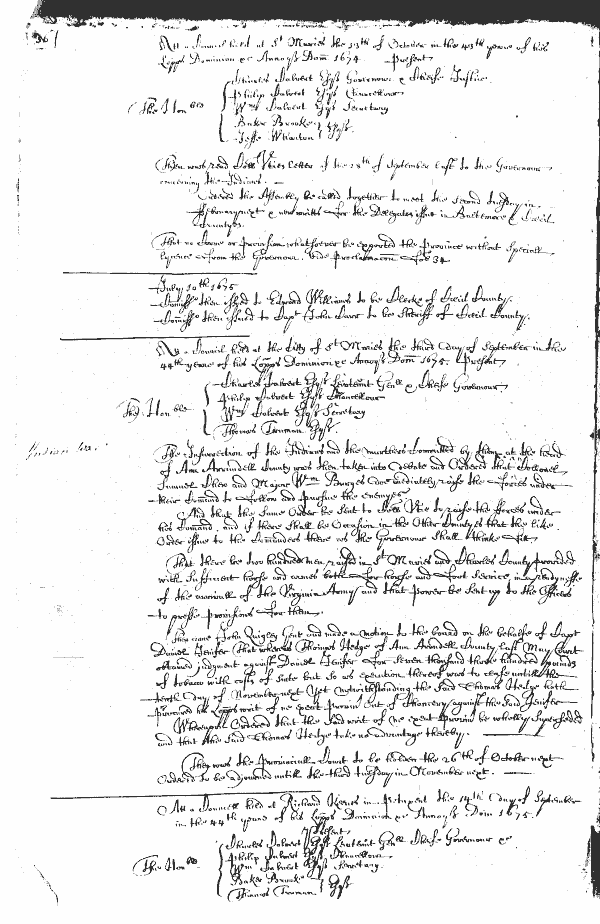 36
Att a Councell held at St Maries the 13th of October in the 43th yeare of his
Lopps Dominion &c Annoq Dom 1674 Present
Charles Calvert Esqr Governour & Cheife Justice
Philip Calvert Esqr Chancellour
The Honble
Wm Calvert Esqr Secretary
Baker Brooke
Jesse Wharton Esqr
Then was read Letter of the 28th of September last to the Governour
concerning the Indians
Ordered the Assembly be called together to meet the second tuesday in
February next & writts for the Delegates in Baltemore & Cecil
Countyes
That no Corne or Provision whatsoever be exported the Province without speciall
lycence from the Governour. Vide Proclamacon fol 34
July 10th 1675
Comiss then issued to Edward Williams to be Clerke of Cecil County.
Comiss then issued to Capt John Carr to be Sheriff of Cecil County.
Att a Councill held at the Citty of St Maries the third day of September in the
44th yeare of his Lopps Dominion &c Annoq Dom 1675. Present
Charles Calvert Esqr Lieutent Genll & Cheife Governour
Philip Calvert Esqr Chancellour
The Honble
Wm Calvert Esqr Secretary
Thomas Truman Esqr
Indian
The Insurrection of the Indians and the murthers Comitted by them at the head
of Ann Arrundell County was then taken into Debate and Ordered that Collonel
Samuel Chew and Major Wm Burges doe imediately raise the fforces under
their Comand to follow and pursue the enemyes
And that the same Order be sent to to raise the fforces under
his Comand, and if there shall be Occasion in the Other Countyes that the like
Order issue to the Comanders there as the Governour shall thinke fitt
That there be two hundred men raised in St Maries and Charles County provided
with sufficient horse and armes both for horse and foot service, in readynesse
of the arrivall of the Virginia Army and that power be sent up to the Officers
to presse provisions for them.
Then came John Quigley Gent and made a motion to the board on the behalfe of Capt
Daniel Jenifer That whereas Thomas Hedge of Ann Arundell County last May Court
obtained judgment against Daniel Jenifer for seven thousand three hundred pounds
of tobacco with costs of suite but so as execution thereof was to cease untill the
tenth day of November next Yet notwithstanding the said Thomas Hedge hath
procured his Lopps writ of ne exeat Provin out of Chancery against the said Jenifer
Whereupon Ordered that the said writ of ne exeat Provin be wholly superseded
and that the said Thomas Hedge take no advantage thereby.
Then was the Provinciall Court to be holden the 26th of October next
Ordered to be adjourned untill the third tuesday in November next.
Att a Councell held at Richard Keenes in Petuxent the 14th day of September
in the 44th yeare of his Lopps Dominion &c Annoq Dom 1675
Present
Charles Calvert Esqr Lieutent Genll Cheife Governour &c
Philip Calvert Esqr Chancellour
The Honble
Wm Calvert Esqr Secretary.
Baker Brooke
Thomas Truman Esqr